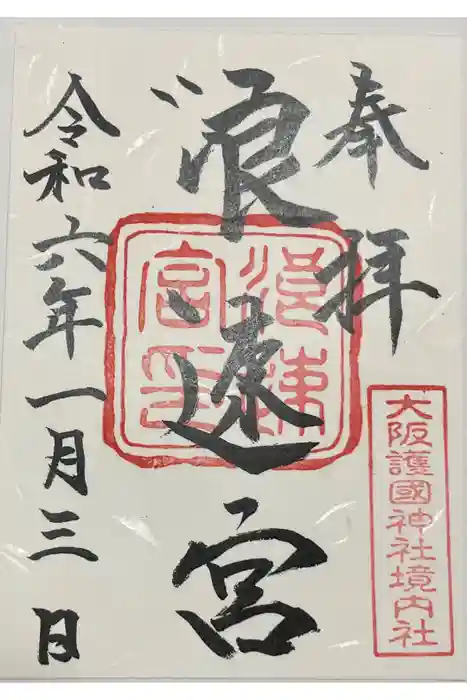 奉拝
大阪護國神社境内社
浪速宮
浪速宮印
令和六年一月三日